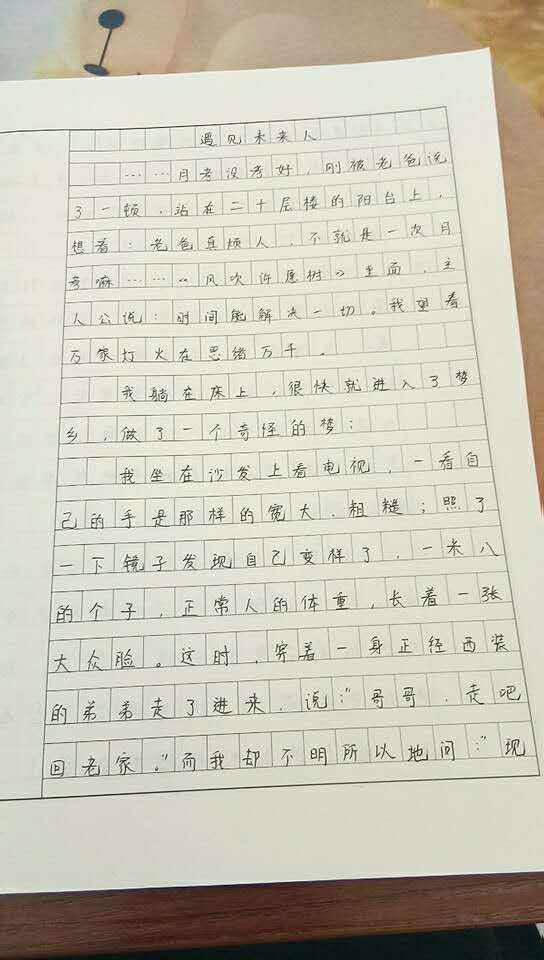 遇见未来人
……月考没考好，刚被老爸说
了一顿，站在二十层楼的阳台上，
想着：老爸真烦人，不就是一次月
考嘛……《风吹许愿树》里面，主
人公说：时间能解决一切。我望着
万家灯火在思绪万千。
我躺在床上，很快就进入了梦
乡，做了一个奇怪的梦：
我坐在沙发上看电视，一看自
己的手是那样的宽大、粗糙；照了
一下镜子发现自己变样了，一米八
的个子，正常人的体重，长着一张
大众脸。这时，穿着一身正经西装
的弟弟走了进来，说：“哥哥，走吧
回老家。”而我却不明所以地问：“现